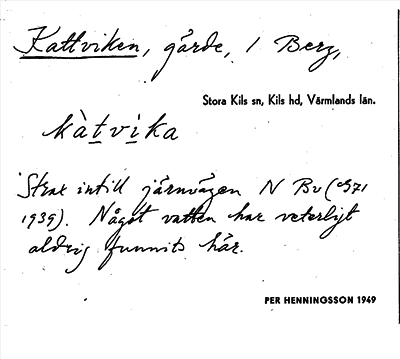 Kattviken, gärde, / Berg,
Stora Kils sn, Kils hd, Värmlands län.
kàtvika
Strax intill järnvägen N Bv (971
1939). Något vatten har veterligt
aldrig funnits här.
PER HENNINGSSON 1949